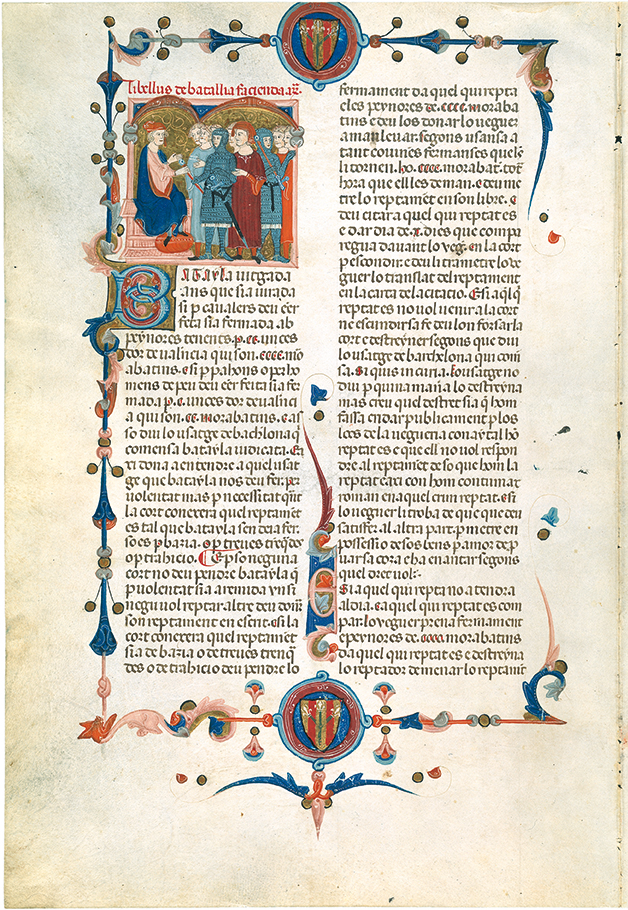 Libellus de batallia facienda
BATAYLA iutgada
ans que sia iurada
si p caualers deu eēr
feta sia fermada ab
peynores tenents. p. cc. unces
dor de ualncia qui son. cccc. mo
abatins. e si p pahons o per ho
mens de peu deu eēr feita sia fe
mada p. c. unces dor de ualncia
a qui son. cc. morabatins. e as
so diu lo usatge de bachlona q̄
comensa batayla iudicata. Ca
ri dona a entendre a quel usat
ge que batayla nos deu fer. p
uiolentat mas p necessitat qn̄t
la cort conexera quel reptamēt
es tal que batayla sen deia fer.
so es p bazia. o p treues trēqdes
o p trahicio. E p so neguna
cort no deu pendre batayla q̄
p uiolentat sia aremida. vn si
negu uol reptar altre deu donar
son reptament en escrit. e si la
cort conexera quel reptamēt
sia de bazia o de treues trenq̄
des o de trahicio deu pendre lo
fermament da quel qui repta
e les peynores de. cccc. moraba
tins e deu los donar lo ueguer
a manleuar. segons usansa a
tant couinēs fermanses quels
li tornen. ho. cccc. morabat. tota
hora que ell les deman. e deu me
tre lo reptamēt en son libre. e
deu citar a quel qui reptat es
e dar dia de. x. dies que compa
regua dauant lo ueg. en la cort
per escondir. e deu li trametre lo ue
guer lo translat del reptament
en la carta de la citacio. E si aql q̄
reptat es no uol uenir a la cort
ne escondir sa fe deu lon forsar la
cort e destreyner segons que diu
lo usatge de barchelona qui comē
sa. Si quis in curia. E o usatge no
diu p quina manera lo destreyna
mas creu quel destret sia q̄ hom
fassa cridar publicament p los
lochs de la uegueria con aytal hō
reptat es e que ell no uol respon
dre al reptamēt de so que hom la
reptat e axi con hom contumax
roman en a quel crim reptat. e si
lo ueguer li troba de que que deu
satisfer al altra part. p metre en
possessio de sos bens p amor de p
uar sa cora e ha enantar segons
quel dret uol.
Si a quel qui repta no atendra
al dia. e a quel qui reptat es com
par. lo ueguer prena fermament
e peynores de. cccc. morabatins
da quel qui reptat es e destreyna
lo reptador de menar lo reptamēt